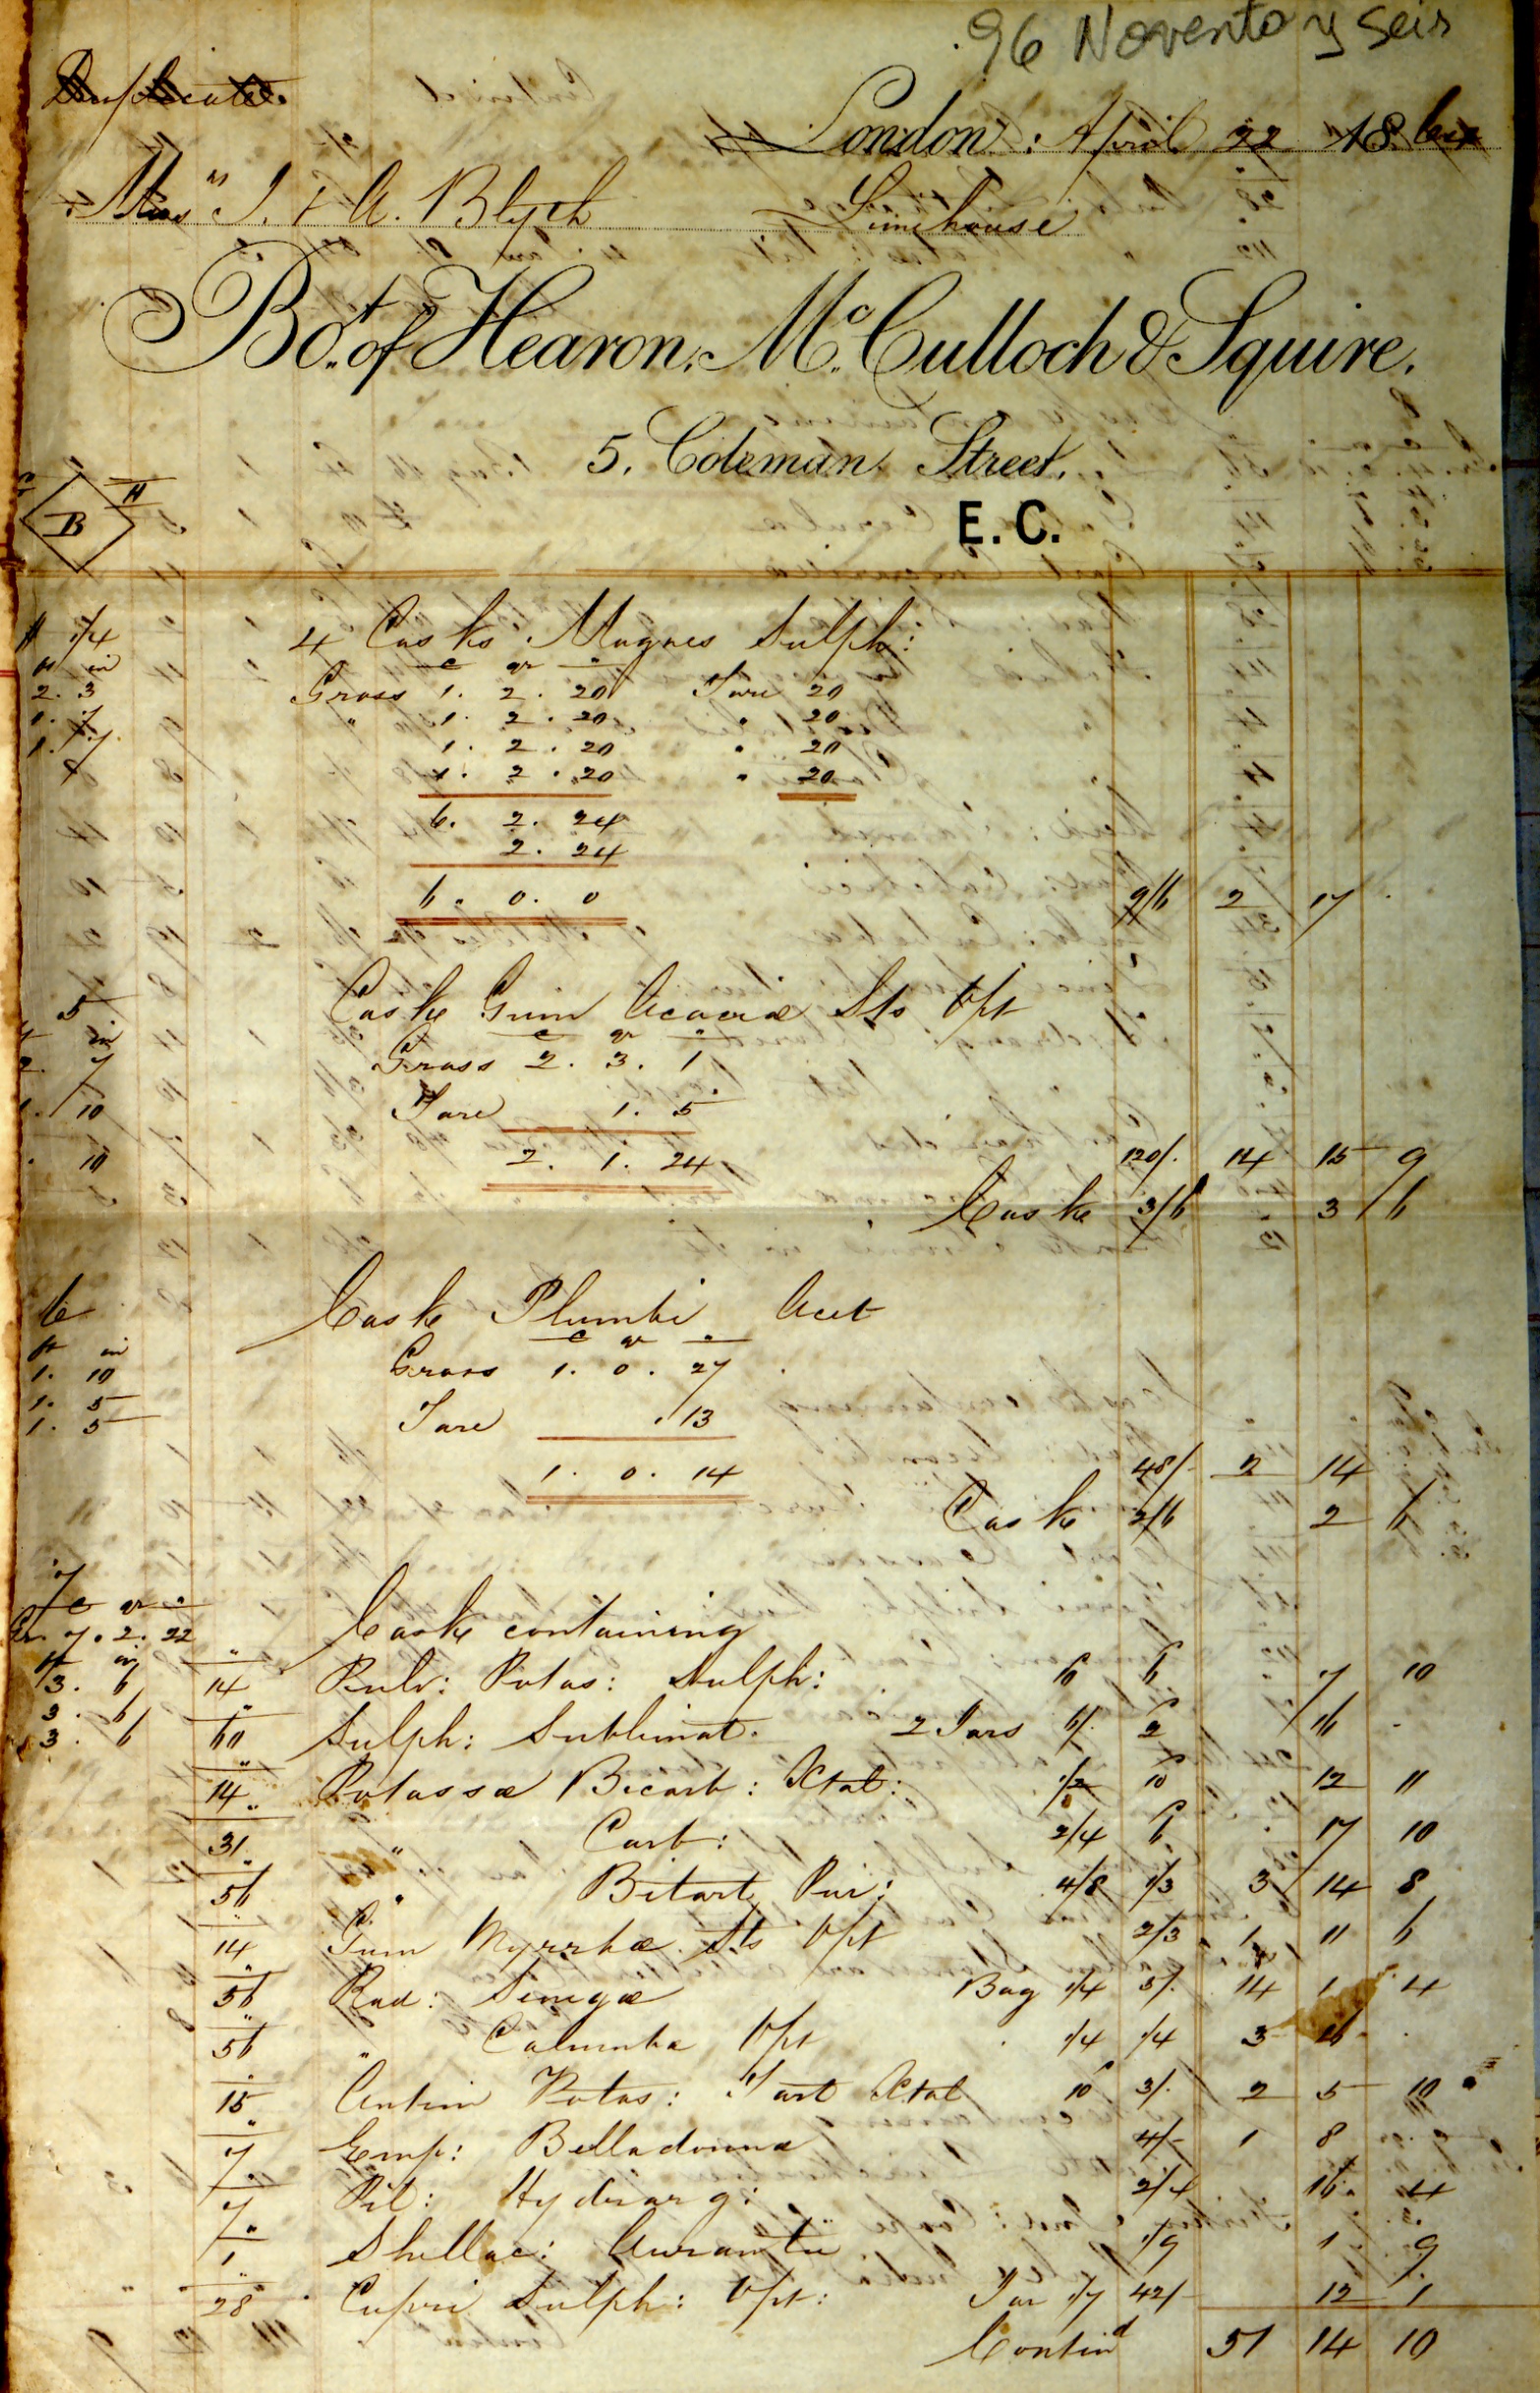 96 Noventa y seis
Duplicate.
London: April 22 18
Mess rs J. & A. Blyth Limehouse
Bo.t of Hearon, Mc.Culloch & Squire.
5, Coleman Street,
E. C.
B H
1/4 4 Casks Magnes Sulph:
ft in c qr "
2. 3 Gross 1. 2. 20 Tare 20
1. 7 " 1. 2. 20 " 20
1. 7 1. 2. 20 " 20
1. 2. 20 " 20
6. 2. 24
2. 24
6. 0. 0 9/6 2 17 .
5 Cask Gum Acaciæ Sts Opt
ft in c qr "
2. 7 Gross 2. 3. 1
1. 10 Tare 1. 5
1. 10 2. 1. 24 120/. 14 15 9
Cask 3/6 3 6
6 Cask Plumbi Acet
ft in c qr "
1. 10 Gross 1. 0. 27
1. 5 Tare . 13
1. 5
1. 0. 14 48/- 2 14
Cask 2/6 2 6
7
c qr "
Gr. 7. 2. 22 Cask containing
ft in
3. 6 14 Pulv: Potas: Sulph: 6 7 10
3. 6 60 Sulph: Sublimat. 2 Jars 6/. 2 16 .
3. 6
14 Potassæ Bicarb: Xtal: 1/2 10 12 11
31 " Carb: 2/4 6 17 10
56 " Bitart Pur: 4/8 1/3 3 14 8
14 Gum Myrrhæ Sts Opt 2/3 1 11 6
56 Rad: Senegæ Bag 1/4 5/. 14 1 4
56 " Calumba Opt 1/4 1/4 3 16 .
15 Antim Potas: Tart Xtal 10 3/. 2 5 10
7 Emp: Belladonna 4/- 1 8
7 Pil: Hydrarg: 2/4 16 4
1 Shellac: Aurantii 1/9 1 9
28 Cupri Sulph: Opt: Jar 1/7 42/- 12 1
Contin d 51 14 10